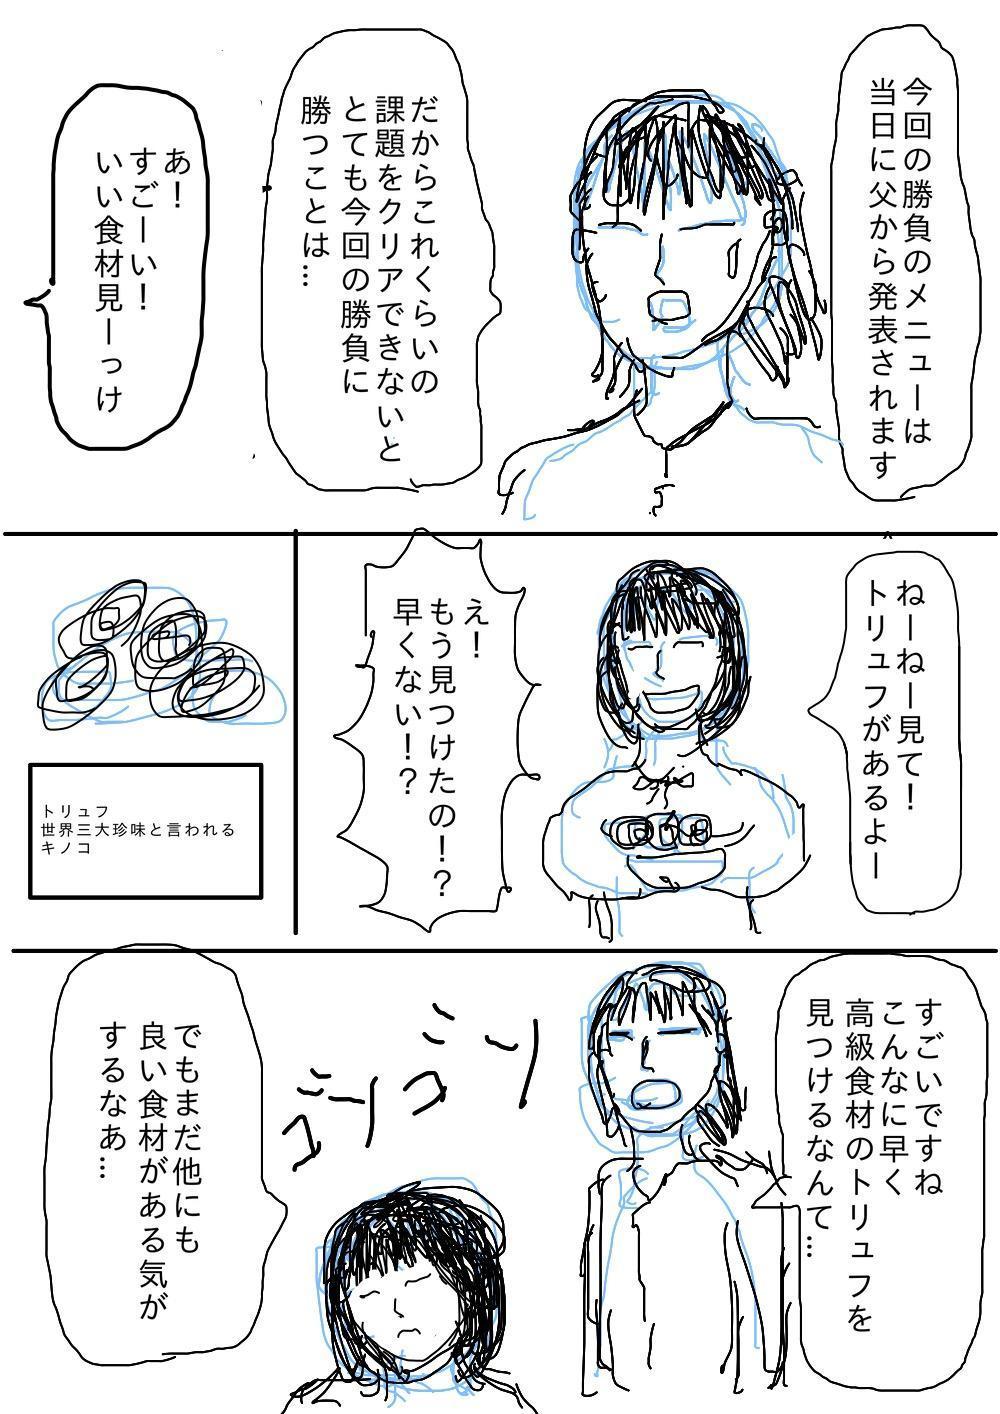 今回の勝負のメニューは
当日に父から発表されます
だからこれくらいの
課題をクリアできないと
とても今回の勝負に
勝つことは…
あ！
すごーい！
いい食材見ーっけ
ねーねー見て！
トリュフがあるよー
え！
もう見つけたの！？
早くない！？
トリュフ
世界三大珍味と言われる
キノコ
すごいですね
こんなに早く
高級食材のトリュフを
見つけるなんて…
ゴソゴソ
でもまだ他にも
良い食材がある気が
するなあ…